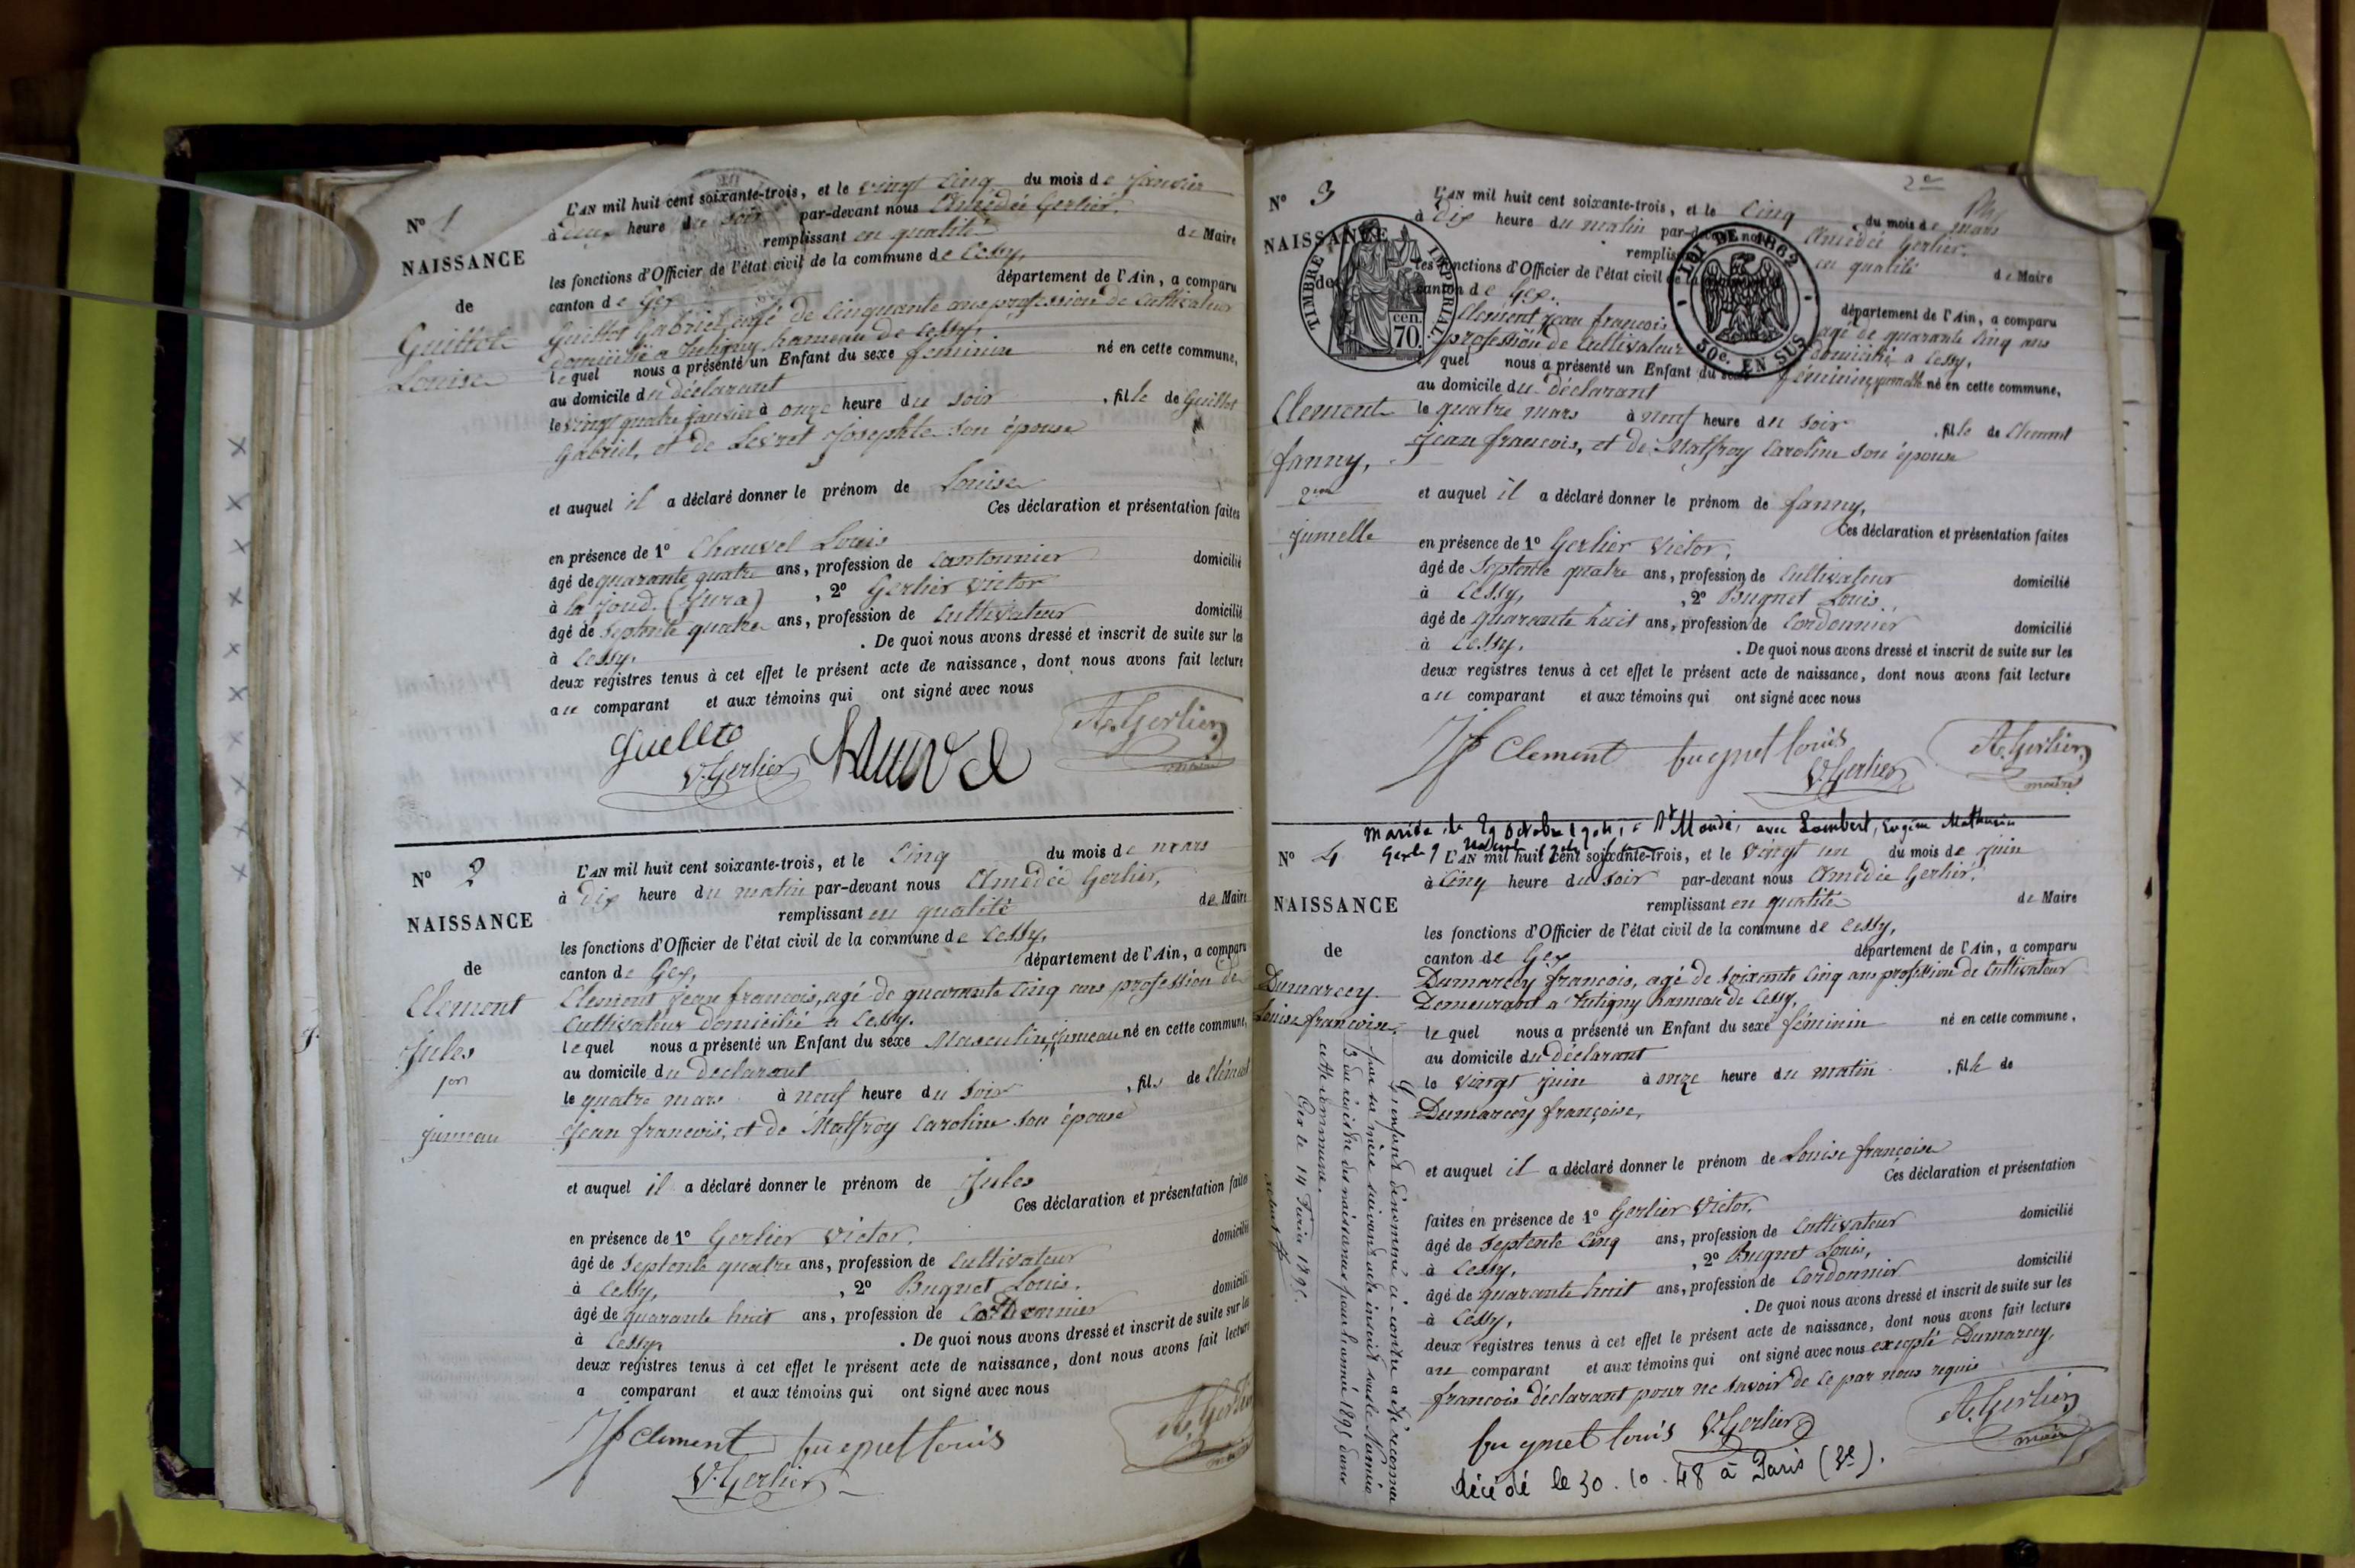 N° 1
NAISSANCE
de
Guillot
Louise
L'AN mil huit cent soixante-trois, et le vingt cinq du mois de Janvier
à deux heure du soir par-devant nous Amédée Gerlier,
remplissant en qualité de Maire
les fonctions d'Officier de l'état civil de la commune de Cessy,
canton de Gex département de l'Ain, a comparu
Guillot Gabriel, agé de cinquante ans profession de cultivateur
domicilié a Tutigny hameau de Cessy,
lequel nous a présenté un Enfant du sexe féminin né en cette commune,
au domicile du déclarant
le vingt quatre janvier à onze heure du soir , fille de Guillot
Gabriel, et de Levret Josephte son épouse
et auquel il a déclaré donner le prénom de Louise
Ces déclaration et présentation faites
en présence de 1° Chauvel Louis
âgé de quarante quatre ans, profession de Cantonnier domicilié
à la joud. (Jura) , 2° Gerlier Victor
âgé de septente quatre ans, profession de Cultivateur domicilié
à Cessy. . De quoi nous avons dressé et inscrit de suite sur les
deux registres tenus à cet effet le présent acte de naissance, dont nous avons fait lecture
au comparant et aux témoins qui ont signé avec nous
V. Gerlier
A. Gerlier
maire
N° 2
NAISSANCE
de
Clement
Jules
1er
jumeau
L'AN mil huit cent soixante-trois, et le cinq du mois de mars
à dix heure du matin par-devant nous Amédée Gerlier,
remplissant en qualité de Maire
les fonctions d'Officier de l'état civil de la commune de Cessy,
canton de Gex, département de l'Ain, a comparu
Clement jean francois, agé de quarante cinq ans profession de
cultivateur domicilié a Cessy.
lequel nous a présenté un Enfant du sexe Masculin, jumeau né en cette commune,
au domicile du déclarant
le quatre mars à neuf heure du soir , fils de Clément
Jean francois, et de Matfroy Caroline son épouse
et auquel il a déclaré donner le prénom de Jules
Ces déclaration et présentation faites
en présence de 1° Gerlier Victor. domicilié
âgé de septente quatre ans, profession de Cultivateur
à Cessy, , 2° Bugnet Louis. domicilié
âgé de quarante huit ans, profession de
à Cessy. . De quoi nous avons dressé et inscrit de suite sur les
deux registres tenus à cet effet le présent acte de naissance, dont nous avons fait lecture
a comparant et aux témoins qui ont signé avec nous
Jf Clement bugnet louis
V. Gerlier
A. Gerlier
N° 3
NAISSANCE
de
Clement
fanny,
2me
jumelle
TIMBRE IMPERIAL
cen.
70.
LOI DE 1862
50c. EN SUS
L'AN mil huit cent soixante-trois, et le cinq du mois de mars
à dix heure du matin par-devant nous Amédée Gerlier.
remplissant en qualité de Maire
les fonctions d'Officier de l'état civil de la
canton de Gex. département de l'Ain, a comparu
Clement jean francois agé de quarante cinq ans
profession de Cultivateur domicilié a Cessy,
quel nous a présenté un Enfant du sexe féminin, jumelle né en cette commune,
au domicile du déclarant
le quatre mars à neuf heure du soir , fille de Clement
jean francois, et de Matfroy Caroline son épouse
et auquel il a déclaré donner le prénom de fanny,
Ces déclaration et présentation faites
en présence de 1° Gerlier Victor,
âgé de septente quatre ans, profession de Cultivateur domicilié
à Cessy, , 2° Bugnet Louis,
âgé de quarante huit ans, profession de Cordonnier domicilié
à Cessy. . De quoi nous avons dressé et inscrit de suite sur les
deux registres tenus à cet effet le présent acte de naissance, dont nous avons fait lecture
au comparant et aux témoins qui ont signé avec nous
Jf Clement bugnet louis
V. Gerlier
A. Gerlier
maire
Mariée le 29 Octobre 1904, à St Mandé, avec Lambert, Eugène Mathurin
N° 4
NAISSANCE
de
Dumarcey
Louise francoise.
L'AN mil huit cent soixante-trois, et le vingt un du mois de juin
à cinq heure du soir par-devant nous Amédée Gerlier.
remplissant en qualité de Maire
les fonctions d'Officier de l'état civil de la commune de Cessy,
canton de Gex département de l'Ain, a comparu
Dumarcey francois, agé de soixante cinq ans profession de Cultivateur
Demeurant a Tutigny hameau de Cessy,
lequel nous a présenté un Enfant du sexe féminin né en cette commune,
au domicile du déclarant
le vingt juin à onze heure du matin , fille de
Dumarcey françoise,
et auquel il a déclaré donner le prénom de Louise françoise
Ces déclaration et présentation
faites en présence de 1° Gerlier Victor. domicilié
âgé de septente cinq ans, profession de Cultivateur
à Cessy, , 2° Bugnet Louis,
âgé de quarante huit ans, profession de Cordonnier domicilié
à Cessy, . De quoi nous avons dressé et inscrit de suite sur les
deux registres tenus à cet effet le présent acte de naissance, dont nous avons fait lecture
au comparant et aux témoins qui ont signé avec nous excepté Dumarcey,
francois déclarant pour ne savoir de ce par nous requis
bugnet louis V. Gerlier
A. Gerlier
maire
décédé le 30.10.48 à Paris
L'enfant dénommé ci-contre a été reconnu
par sa mère suivant acte inscrit sous le Numéro
13 du registre des naissances pour l'année 1895 dans
cette commune.
Gex le 14 Février 1895.